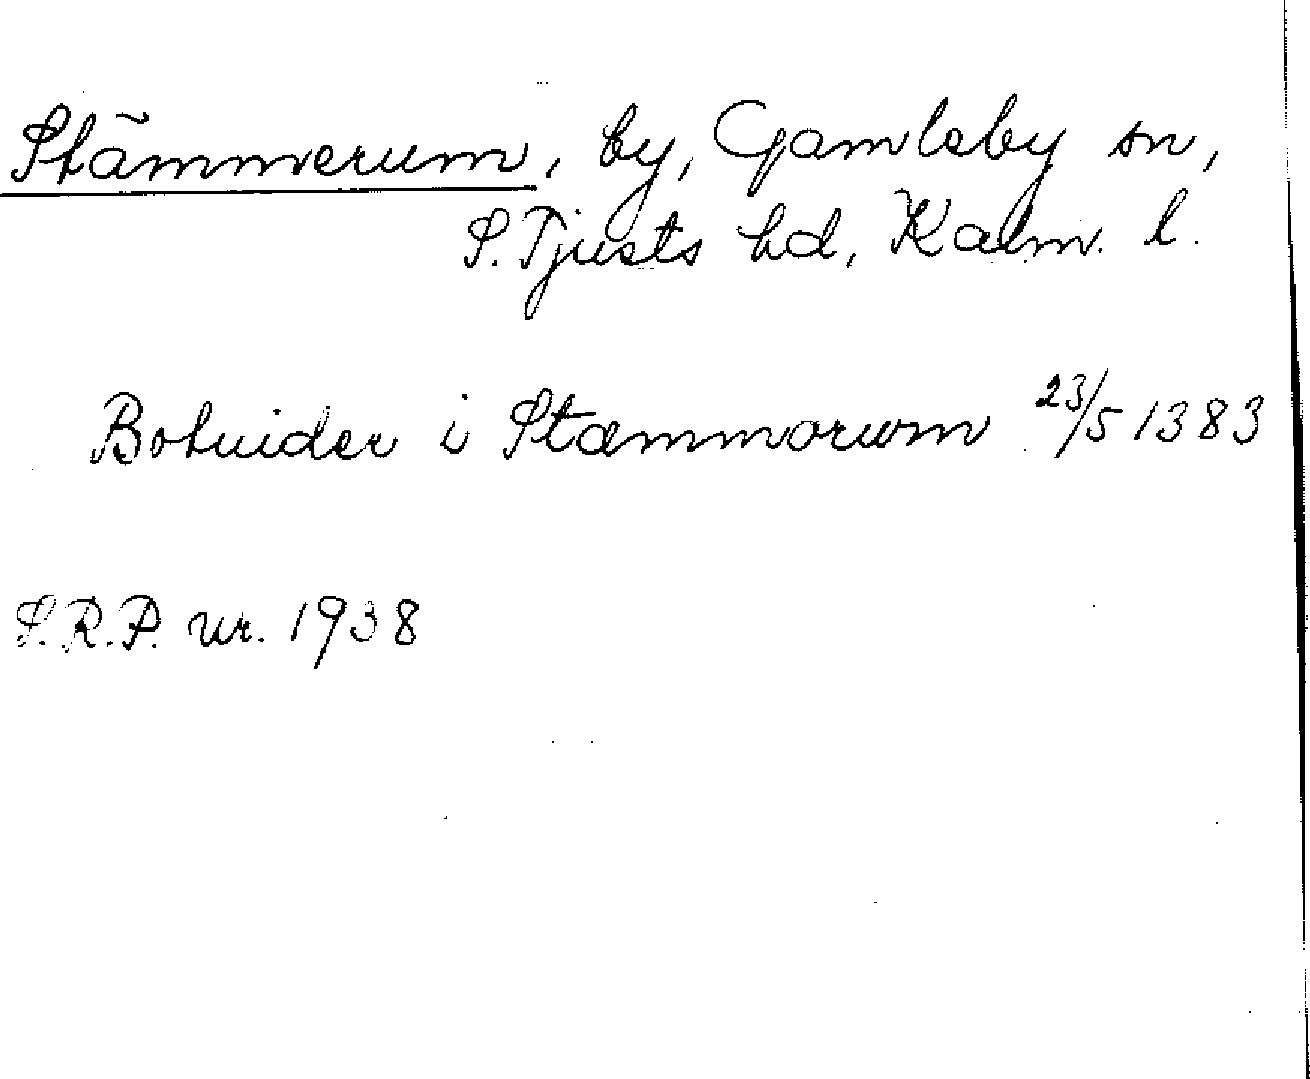 Stämmerum, by, Gamleby sn,
S. Tjusts hd, Kalm. l.
Botuider i Stæmmorum 23/5 1383
S.R.P. nr. 1938